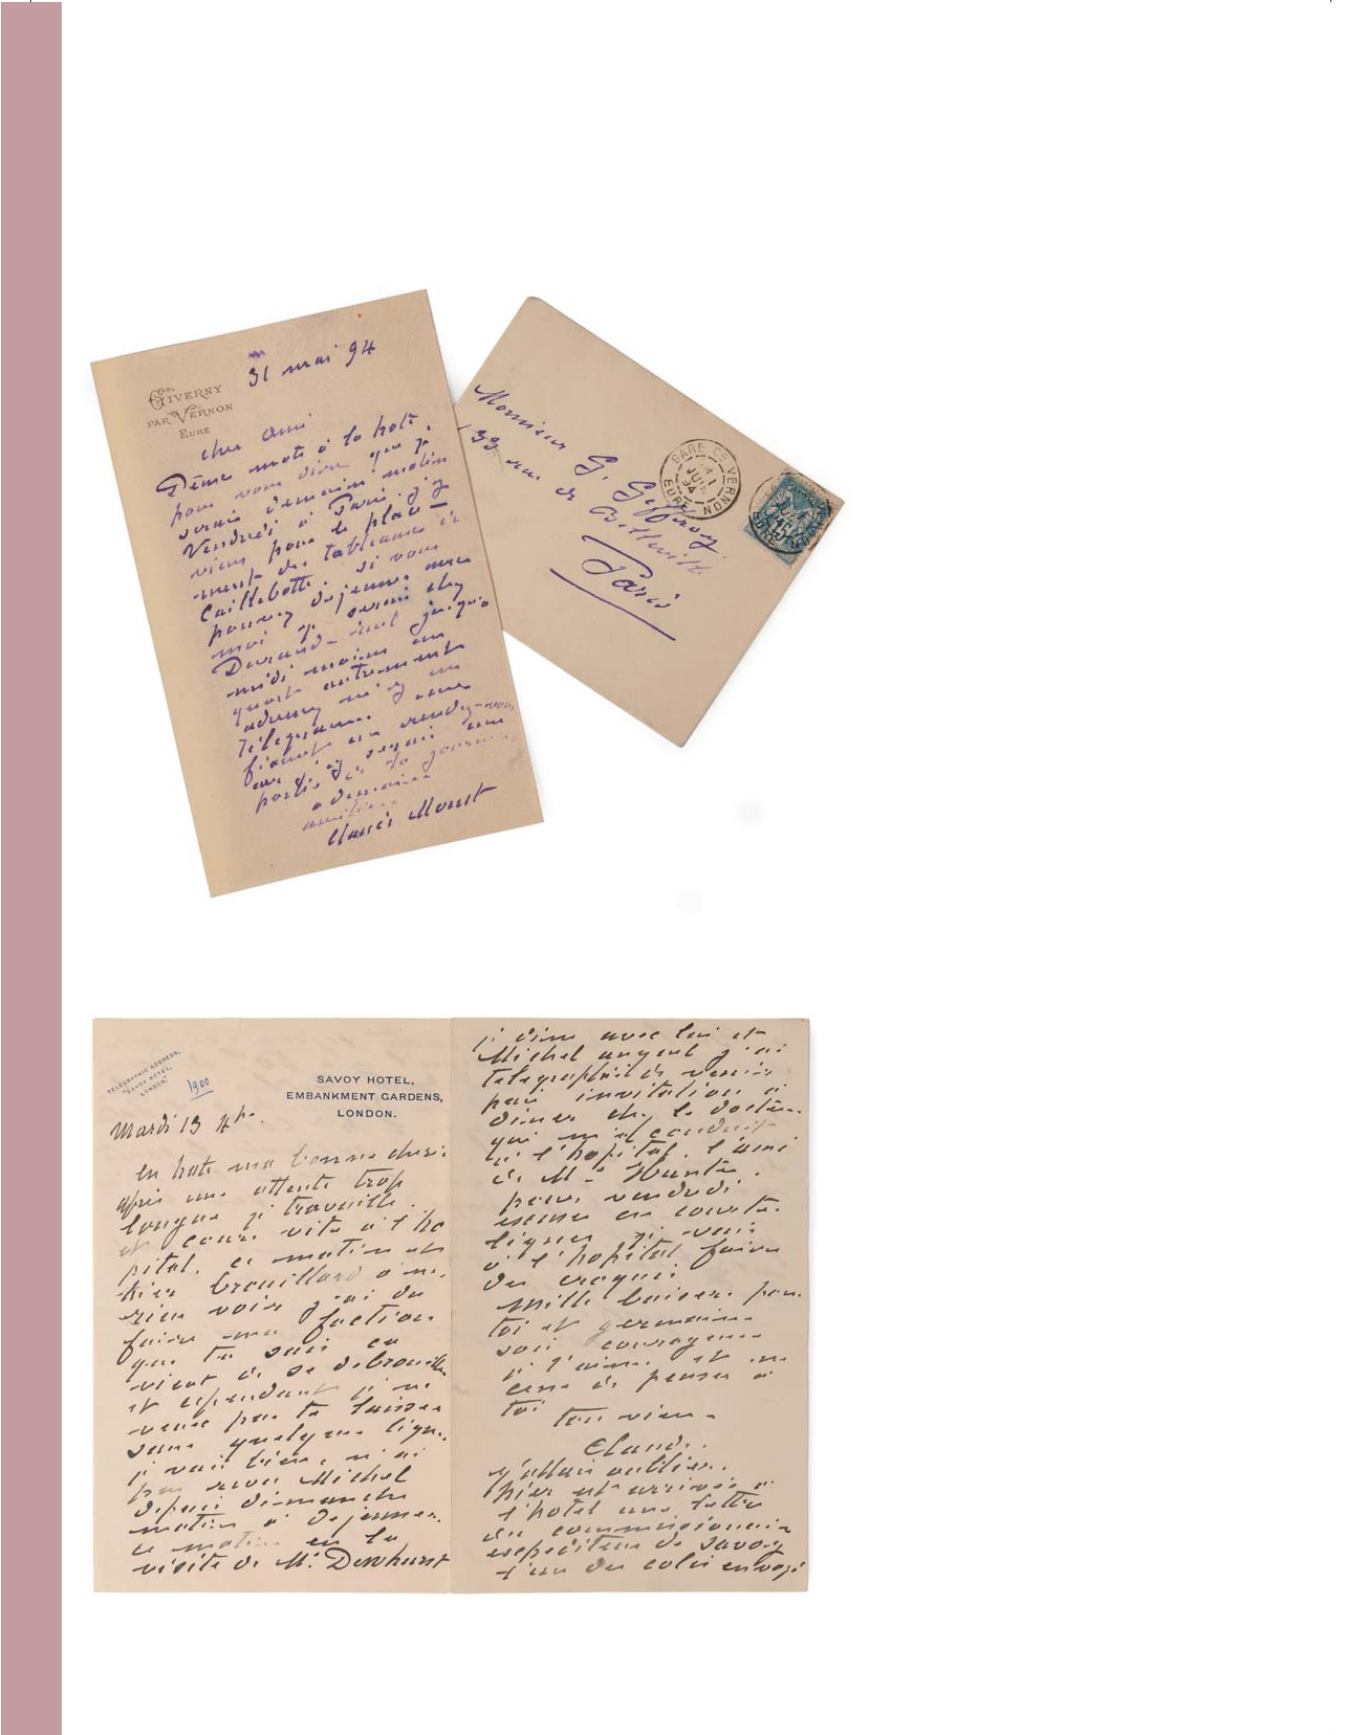 31 mai 94
GIVERNY
PAR VERNON
EURE
cher ami
mots à la hate,
pour vous dire que je
serais demain matin
Vendredi à Paris. j'y
viens pour le place-
ment des tableaux de
Caillebotte. si vous
pouvez dejeuner avec
moi je serai chez
Durand-ruel jusqu'a
midi moins un
quart autrement
adressez m'y un
Télégramme
fixant un rendez-vous
car j'y serai une
partie de la journée
a demain
amitiés
Claude Monet
Monsieur G. Geffroy
133 rue de Belleville
Paris
GARE DE VERNON
1 JUIN 94
EURE
15
TELEGRAPHIC ADDRESS,
"SAVOY HOTEL,
LONDON."
1900
SAVOY HOTEL,
EMBANKMENT GARDENS,
LONDON.
Mardi 13 4h.
en hate ma bonne cherie
après une attente trop
longue je travaille.
et cours vite à l'ho
pital. ce matin et
hier brouillard à ne
rien voir j'ai du
faire ma faction
que tu sais ca
vient de se debrouiller
et cependant je ne
veux pas te laisser
sans quelques lignes
je vais bien, n'ai
pas revu Michel
depuis dimanche
matin à dejeuner.
ce matin eu la
visite de Mr. Dewhurst
je dine avec lui et
Michel auquel j'ai
telegraphié de venir
puis invitation à
diner chez le docteur
qui m'a conduit
à l'hopital. l'ami
de Me Hunter.
pour vendredi
excuse ces courtes
lignes je vais
à l'hopital faire
des croquis
mille baisers pour
toi et germaine
sois courageuse
je t'aime et ne
cesse de penser à
toi
ton vieux
Claude.
j'allais oublier.
hier est arrivée à
l'hotel une lettre
du commissionnaire
expediteur de Savoy
l'un des colis envoyé